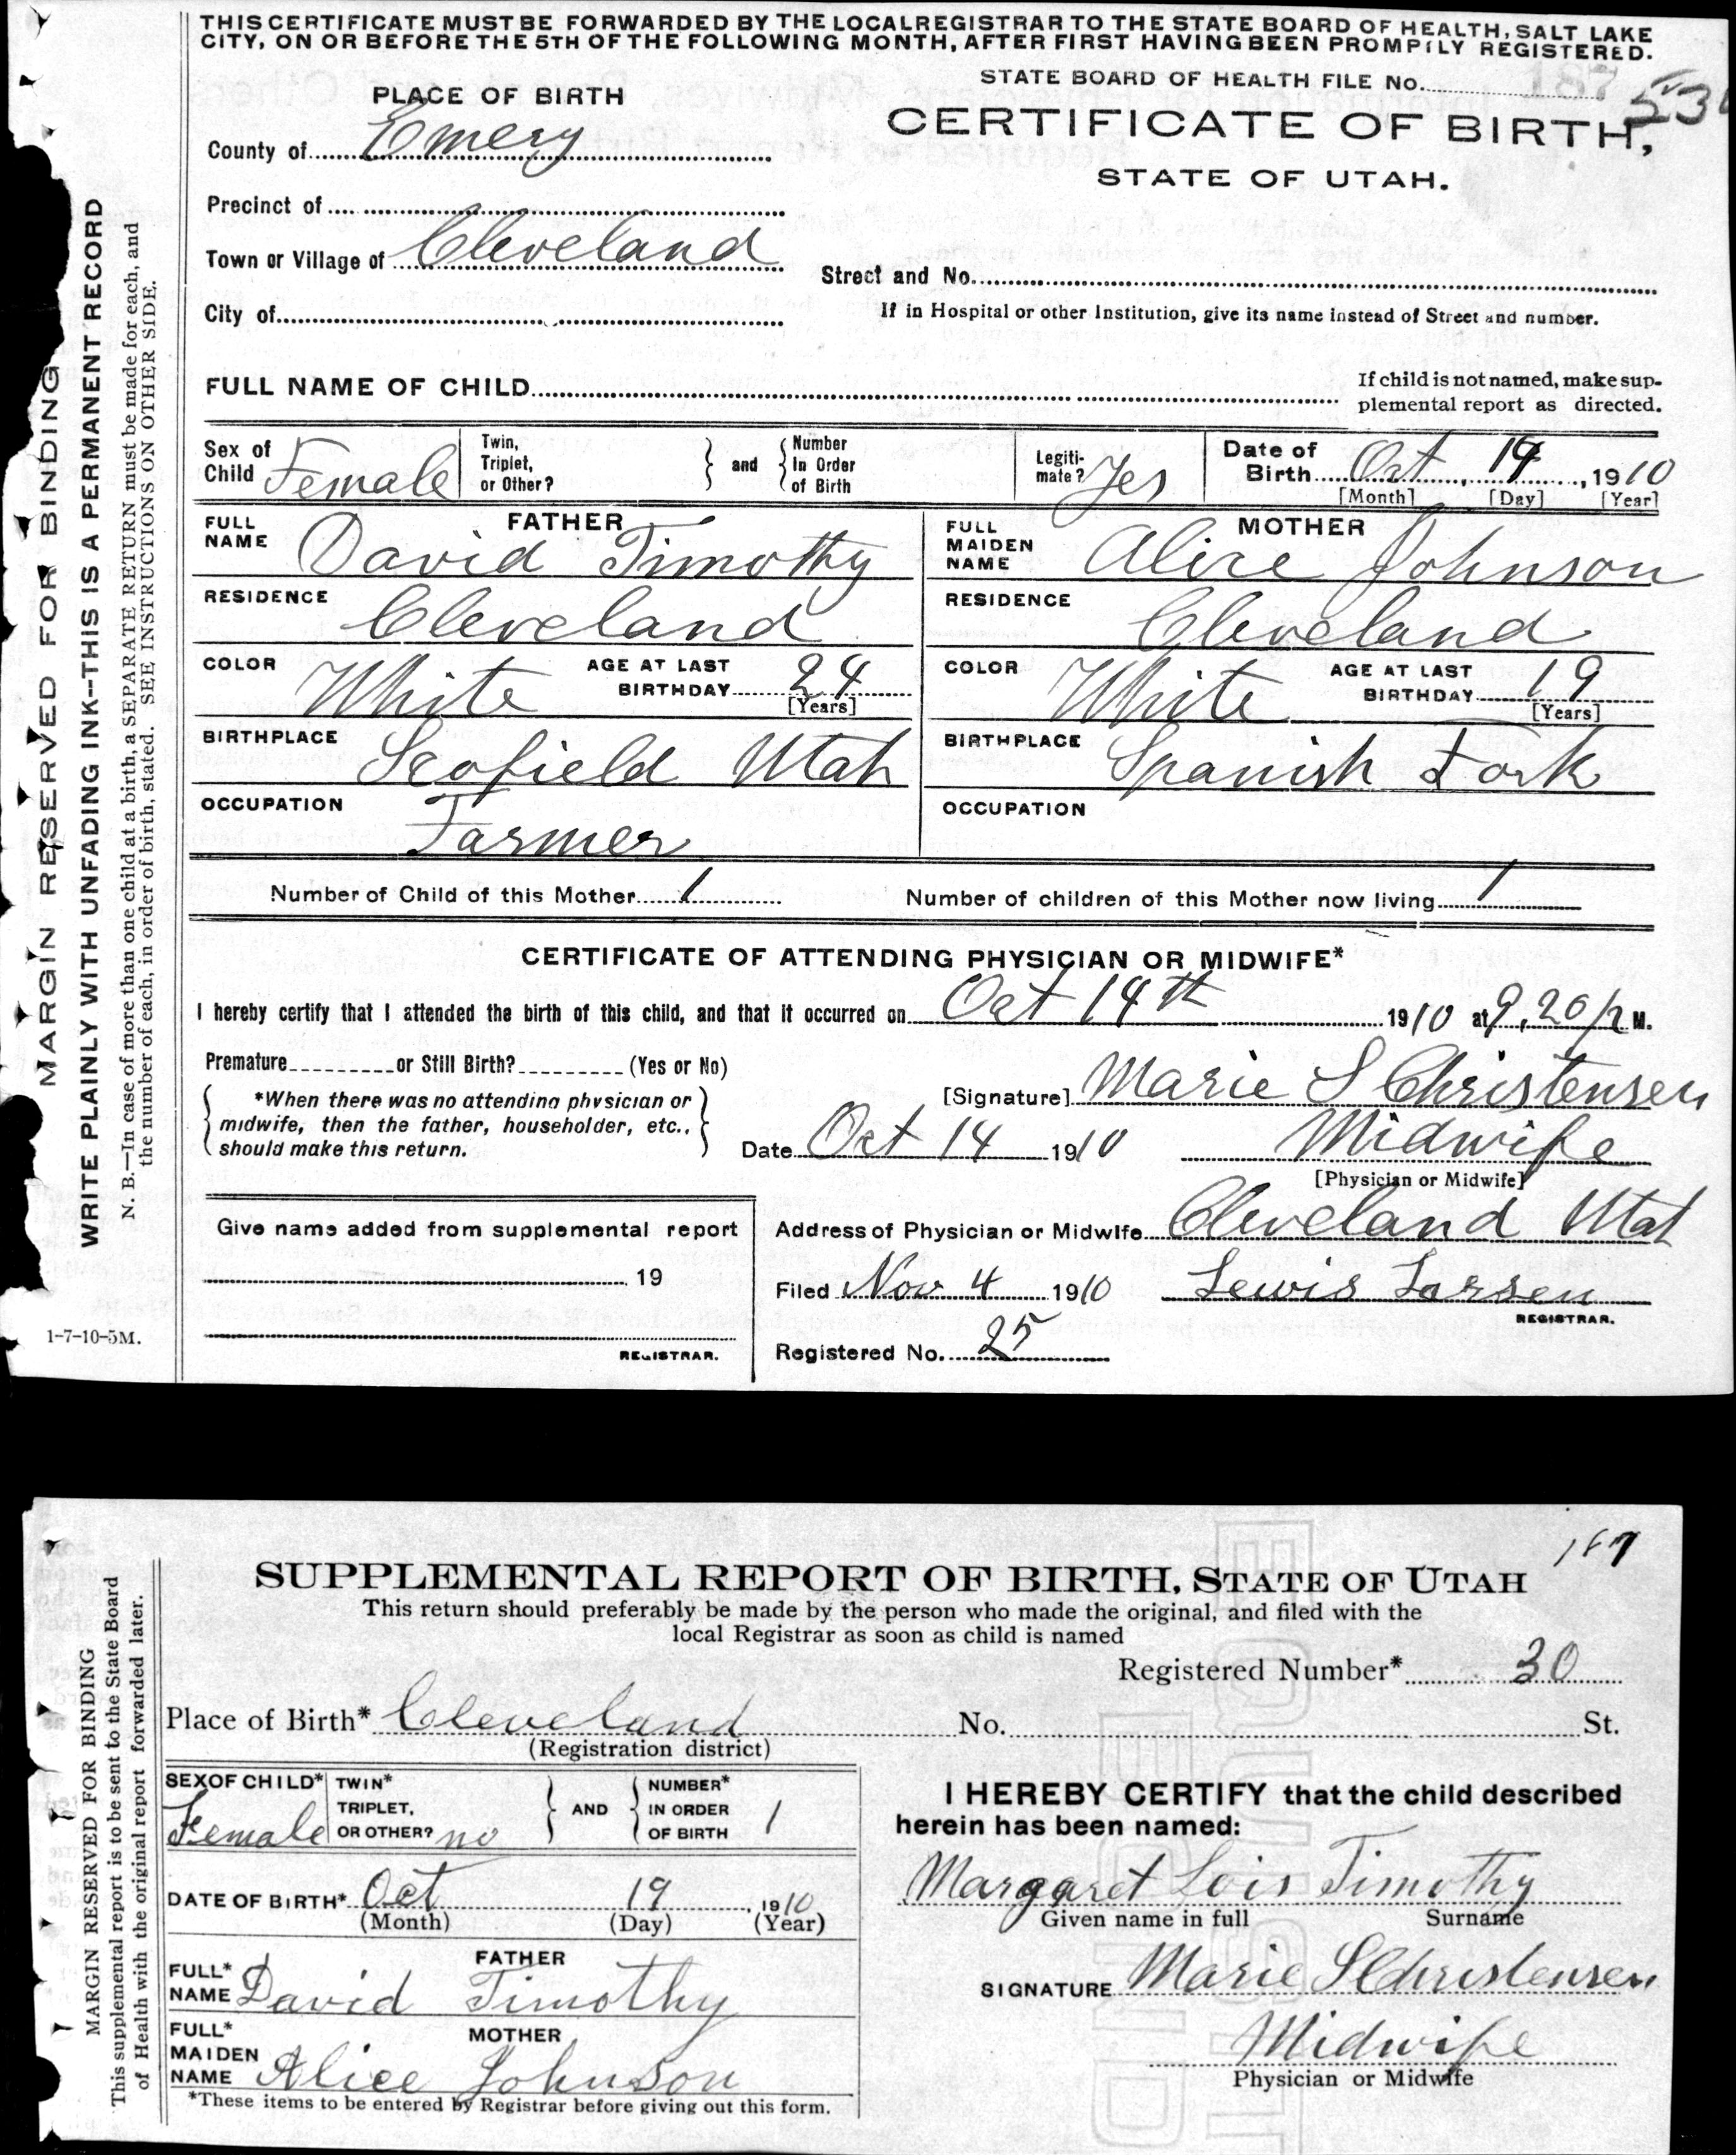 THIS CERTIFICATE MUST BE FORWARDED BY THE LOCAL REGISTRAR TO THE STATE BOARD OF HEALTH, SALT LAKE
CITY, ON OR BEFORE THE 5TH OF THE FOLLOWING MONTH, AFTER FIRST HAVING BEEN PROMPTLY REGISTERED.
STATE BOARD OF HEALTH FILE No. 187
PLACE OF BIRTH
CERTIFICATE OF BIRTH,
STATE OF UTAH.
County of Emery
Precinct of
Town or Village of Cleveland
Street and No.
City of
If in Hospital or other Institution, give its name instead of Street and number.
FULL NAME OF CHILD
If child is not named, make sup-
plemental report as directed.
Sex of Child Female
Twin, Triplet, or Other?
and
Number In Order of Birth
Legiti-mate? Yes
Date of Birth Oct 19, 1910
[Month] [Day] [Year]
FATHER
FULL NAME David Timothy
RESIDENCE
Cleveland
COLOR White
AGE AT LAST BIRTHDAY 24
[Years]
BIRTHPLACE
Scofield Utah
OCCUPATION
Farmer
MOTHER
FULL MAIDEN NAME Alice Johnson
RESIDENCE
Cleveland
COLOR White
AGE AT LAST BIRTHDAY 19
[Years]
BIRTHPLACE
Spanish Fork
OCCUPATION
Number of Child of this Mother 1
Number of children of this Mother now living 1
CERTIFICATE OF ATTENDING PHYSICIAN OR MIDWIFE*
I hereby certify that I attended the birth of this child, and that it occurred on Oct 14th 1910 at 9,20 p M.
Premature or Still Birth? (Yes or No)
*When there was no attending physician or
midwife, then the father, householder, etc.,
should make this return.
[Signature] Marie S Christensen
Date Oct 14 1910
Midwife
[Physician or Midwife]
Give name added from supplemental report
19
REGISTRAR.
Address of Physician or Midwife Cleveland Utah
Filed Nov 4 1910 Lewis Larsen
REGISTRAR.
Registered No. 25
MARGIN RESERVED FOR BINDING
WRITE PLAINLY WITH UNFADING INK--THIS IS A PERMANENT RECORD
N. B.—In case of more than one child at a birth, a SEPARATE RETURN must be made for each, and
the number of each, in order of birth, stated. SEE INSTRUCTIONS ON OTHER SIDE.
1-7-10-5M.
187
SUPPLEMENTAL REPORT OF BIRTH, STATE OF UTAH
This return should preferably be made by the person who made the original, and filed with the
local Registrar as soon as child is named
Registered Number* 30
Place of Birth* Cleveland No. St.
(Registration district)
SEX OF CHILD* Female
TWIN* TRIPLET, OR OTHER? no
AND
NUMBER* IN ORDER OF BIRTH 1
DATE OF BIRTH* Oct 19, 1910
(Month) (Day) (Year)
FATHER
FULL* NAME David Timothy
MOTHER
FULL* MAIDEN NAME Alice Johnson
*These items to be entered by Registrar before giving out this form.
I HEREBY CERTIFY that the child described
herein has been named:
Margaret Lois Timothy
Given name in full Surname
SIGNATURE Marie S Christensen
Midwife
Physician or Midwife
MARGIN RESERVED FOR BINDING
This supplemental report is to be sent to the State Board
of Health with the original report forwarded later.